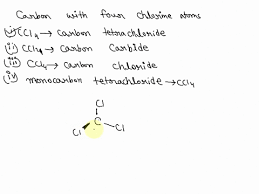 Carbon with four chlorine atoms
(i) CCl4 → Carbon tetrachloride
(ii) CCl4 → Carbon Carbide
(iii) CCl4 → Carbon chloride
(iv) monocarbon tetrachloride → CCl4
Cl
C
Cl
Cl